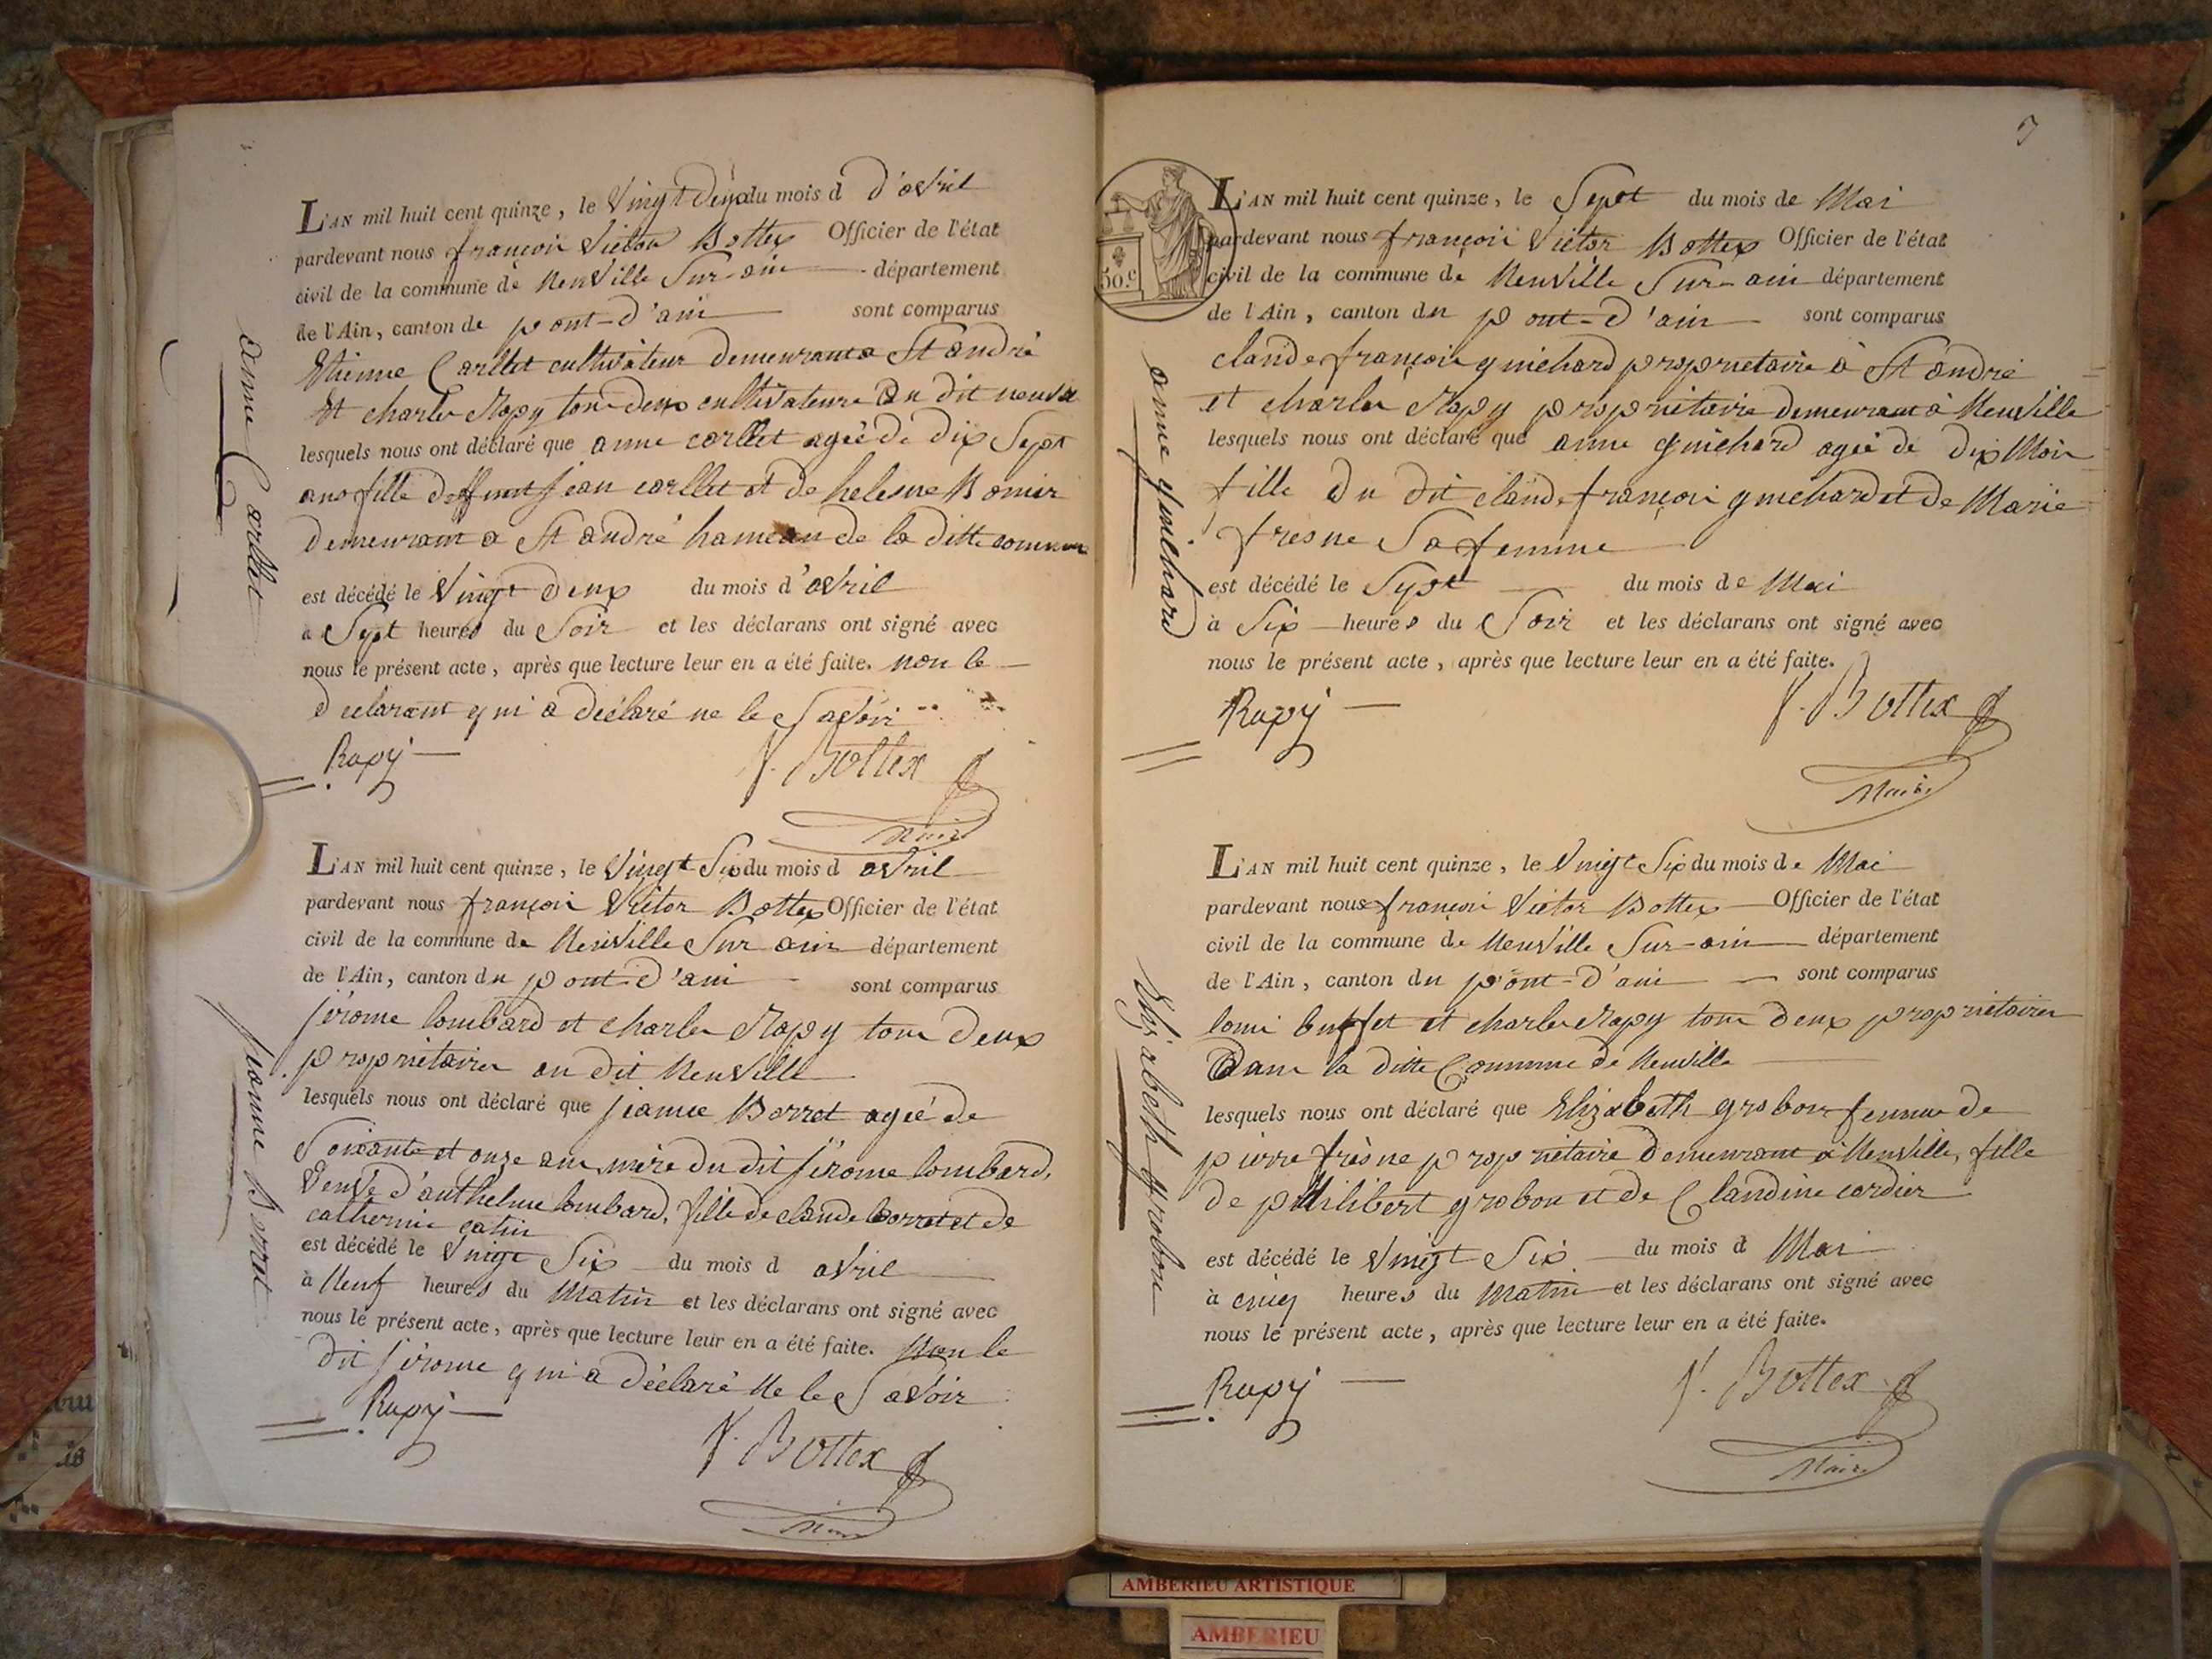 L'AN mil huit cent quinze, le Vingt Deux du mois d d'avril
pardevant nous françois Victor Bottex Officier de l'état
civil de la commune de Neuville Sur-ain département
de l'Ain, canton de pont-d'ain sont comparus
Etienne Carllet cultivateur demeurant a St andré
et charles Rapy tous deux cultivateurs au dit neuville
lesquels nous ont déclaré que anne carllet agée de dix Sept
ans fille deffunt jean carllet et de helesne Bomier
demeurant a St andré hameau de la ditte commune
est décédé le Vingt Deux du mois d'avril
à Sept heures du Soir et les déclarans ont signé avec
nous le présent acte, après que lecture leur en a été faite. non le
déclarant qui a déclaré ne le Savoir
Rapy
V. Bottex
Maire
anne Carllet
L'AN mil huit cent quinze, le Vingt Six du mois d avril
pardevant nous françois Victor Bottex Officier de l'état
civil de la commune de Neuville Sur ain département
de l'Ain, canton du pont-d'ain sont comparus
jérome lombard et charles Rapy tous deux
propriétaires au dit Neuville
lesquels nous ont déclaré que jeanne Borret agée de
Soixante et onze ans, mère du dit jérome lombard,
Veuve d'anthelme lombard, fille de claude borret et de
catherine catin
est décédé le Vingt Six du mois d avril
à Neuf heures du Matin et les déclarans ont signé avec
nous le présent acte, après que lecture leur en a été faite. Non le
dit jérome qui a déclaré Ne le Savoir
Rapy
V. Bottex
Maire
jeanne Borret
7
50.c
L'AN mil huit cent quinze, le Sept du mois de Mai
pardevant nous françois Victor Bottex Officier de l'état
civil de la commune de Neuville Sur-ain département
de l'Ain, canton du pont-d'ain sont comparus
claude françois guichard propriétaire à St andré
et charles Rapy propriétaire demeurant à Neuville
lesquels nous ont déclaré que anne guichard agée de dix Mois
fille du dit claude françois guichard et de Marie
fresne Sa femme
est décédé le Sept du mois de Mai
à Six heures du Soir et les déclarans ont signé avec
nous le présent acte, après que lecture leur en a été faite.
Rapy
V. Bottex
Maire
anne guichard
L'AN mil huit cent quinze, le Vingt Six du mois de Mai
pardevant nous françois Victor Bottex Officier de l'état
civil de la commune de Neuville Sur-ain département
de l'Ain, canton du pont-d'ain sont comparus
louis buffet et charles Rapy tous deux propriétaires
Dans la ditte Commune de Neuville
lesquels nous ont déclaré que Elizabeth grobon femme de
pierre frèsne propriétaire demeurant à Neuville, fille
de philibert grobon et de Claudine cordier
est décédé le Vingt Six du mois d Mai
à cinq heures du Matin et les déclarans ont signé avec
nous le présent acte, après que lecture leur en a été faite.
Rapy
V. Bottex
Maire
Elizabeth grobon
AMBERIEU ARTISTIQUE
AMBERIEU